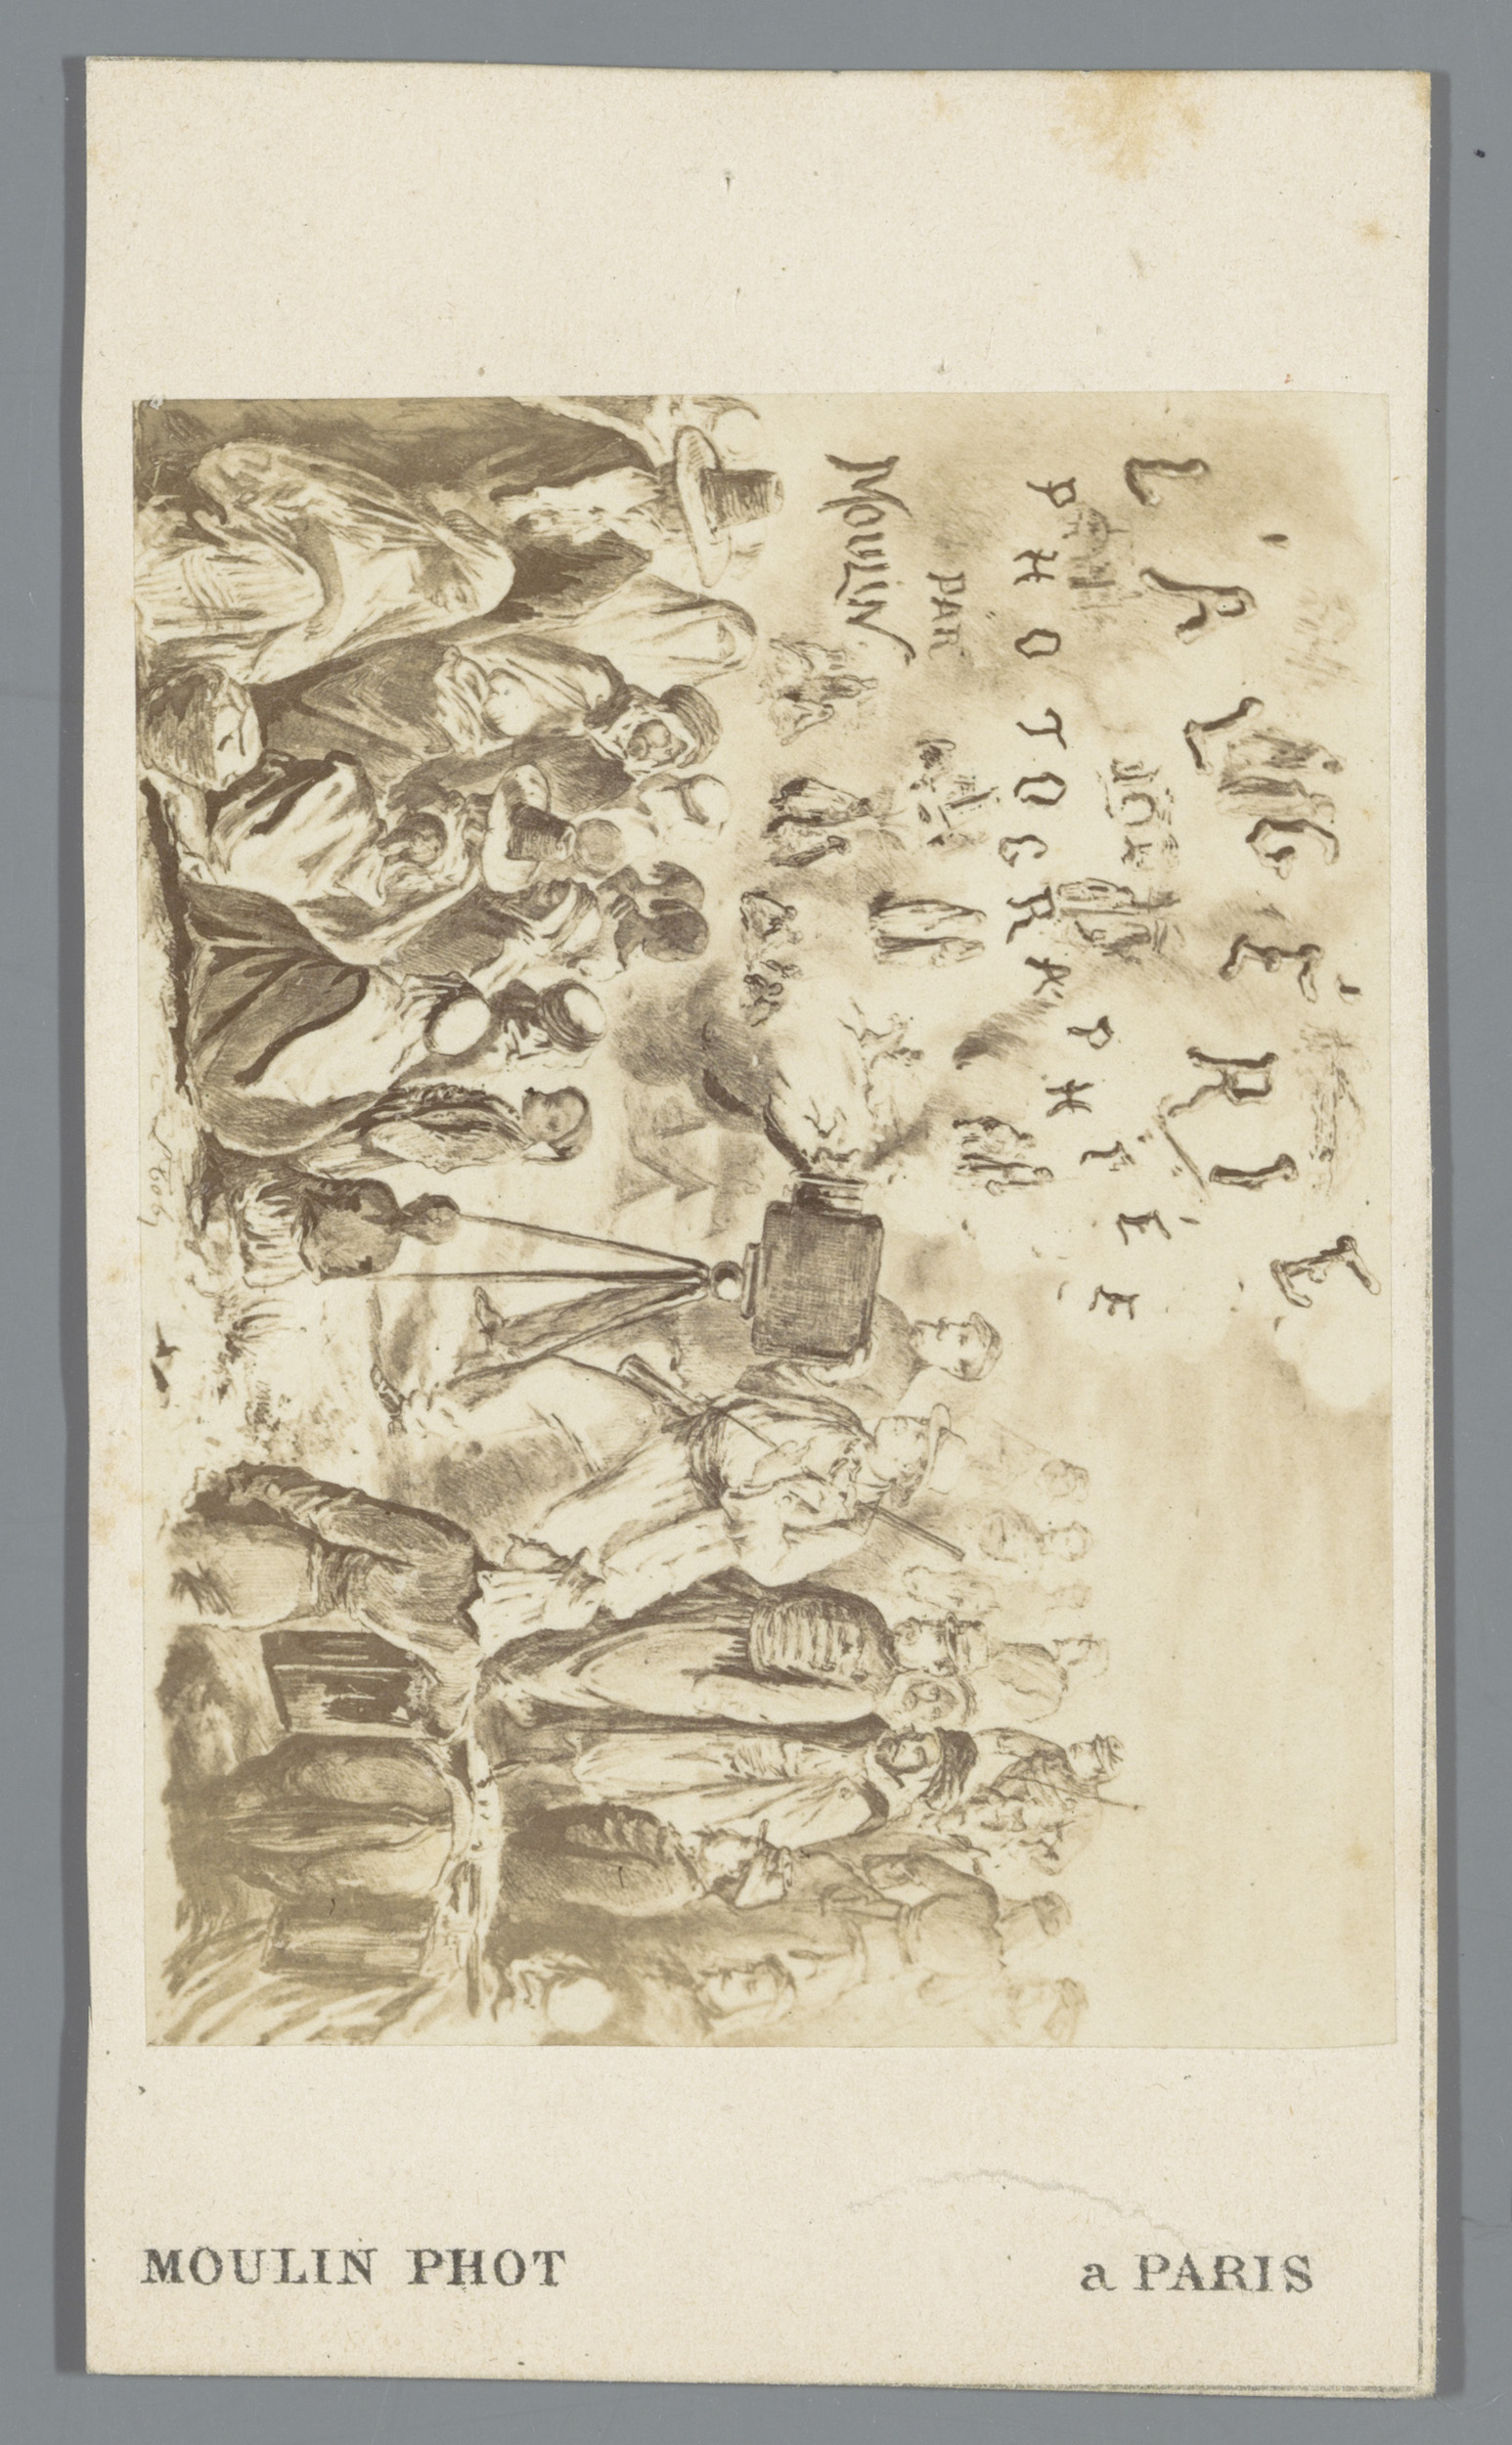 L'ALGÉRIE
PHOTOGRAPHIÉE
PAR
MOULIN
MOULIN PHOT a PARIS